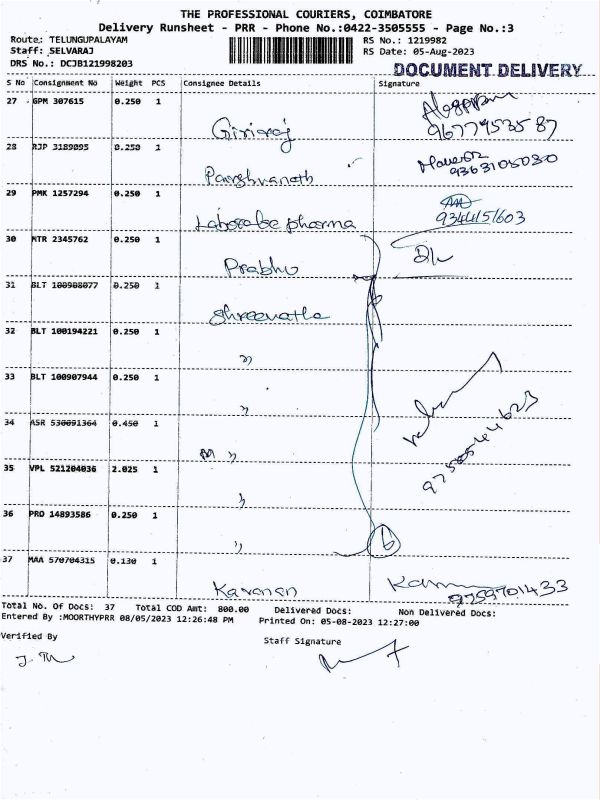 THE PROFESSIONAL COURIERS, COIMBATORE
Delivery Runsheet - PRR - Phone No.:0422-3505555 - Page No.:3
Route: TELUNGUPALAYAM RS No.: 1219982
Staff: SELVARAJ RS Date: 05-Aug-2023
DRS No.: DCJB121998203
DOCUMENT DELIVERY
S No Consignment No Weight PCS Consignee Details Signature
27 GPM 307615 0.250 1
Giriraj 9677953587
28 RJP 3189095 0.250 1
Parshvanath 9363105030
29 PMK 1257294 0.250 1
pharma 9344151603
30 MTR 2345762 0.250 1
Prabhu
31 BLT 100908077 0.250 1
Shreenatha
32 BLT 100194221 0.250 1
"
33 BLT 100907944 0.250 1
"
34 ASR 530091364 0.450 1
"
35 VPL 521204036 2.025 1
"
36 PRO 14893586 0.250 1
" 6
37 MAA 570704315 0.130 1
Karanan
Total No. Of Docs: 37 Total COD Amt: 800.00 Delivered Docs: Non Delivered Docs:
Entered By :MOORTHYPRR 08/05/2023 12:26:48 PM Printed On: 05-08-2023 12:27:00
Verified By Staff Signature